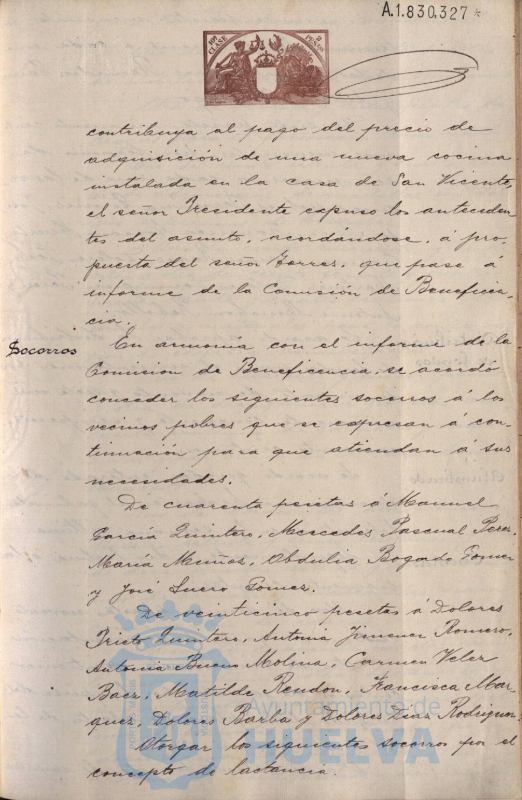 A.1.830.327*
10ª CLASE
2 PESETAS
contribuya al pago del precio de
adquisición de una nueva cocina
instalada en la casa de San Vicente,
el señor Presidente expuso los anteceden-
tes del asunto, acordándose, á pro-
puesta del señor Torres, que pase á
informe de la Comisión de Beneficen-
cia.
Socorros
En armonía con el informe de la
Comision de Beneficencia se acordó
conceder los siguientes socorros á los
vecinos pobres que se expresan á con-
tinuación para que atiendan á sus
necesidades.
De cuarenta pesetas á Manuel
García Quintero, Mercedes Pascual Perez,
María Muñoz, Obdulia Bogado Gomez
y José Suero Gomez.
De veinticinco pesetas á Dolores
Prieto Quintero, Antonia Jimenez Romero,
Antonia Bueno Molina, Carmen Velez
Baez, Matilde Rendon, Francisca Mar-
quez, Dolores Barba y Dolores Diaz Rodriguez.
Otorgar los siguientes socorros por el
concepto de lactancia.
Ayuntamiento de
HUELVA